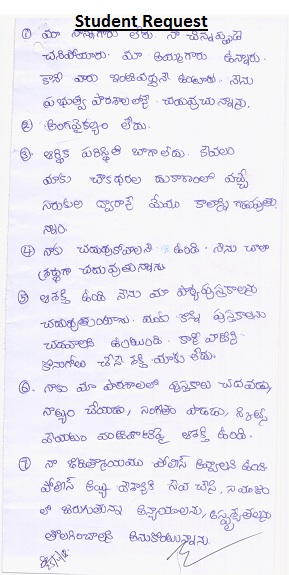 Student Request
① మా నాన్నగారు లేరు. నా చిన్నప్పుడే
చనిపోయారు. మా అమ్మగారు ఉన్నారు.
కానీ వారు ఇంటివద్దనే ఉంటారు. నేను
ప్రభుత్వ పాఠశాలలో చదువుచున్నాను.
② అంగవైకల్యం లేదు.
③ ఆర్థిక పరిస్థితి బాగాలేదు. కేవలం
మాకు చౌకధరల దుకాణంలో వచ్చే
సరుకుల ద్వారానే మేము కాలాన్ని గడుపుతు
న్నాం.
④ నాకు చదువుకోవాలని ఉంది. నేను చాలా
శ్రద్ధగా చదువుతున్నాను.
⑤ ఆసక్తి ఉంది నేను మా పాఠ్యపుస్తకాలను
చదువుతుంటాను. మరి కొన్ని పుస్తకాలను
చదవాలని ఉంటుంది. కానీ వాటిని
కొనుగోలు చేసే శక్తి మాకు లేదు.
⑥ నాకు మా పాఠశాలలో పుస్తకాలు చదవడం,
నాట్యం చేయడం, సంగీతం పాడడం, స్కిట్స్
వేయటం వంటివాటిపై ఆసక్తి ఉంది.
⑦ నా జీవితాశయము పోలీస్ అవ్వాలని ఉంది
పోలీస్ అయ్యి దేశానికి సేవ చేసి, సమాజం
లో జరుగుతున్న అన్యాయాలను,
తొలగించాలని అనుకుంటున్నాను.